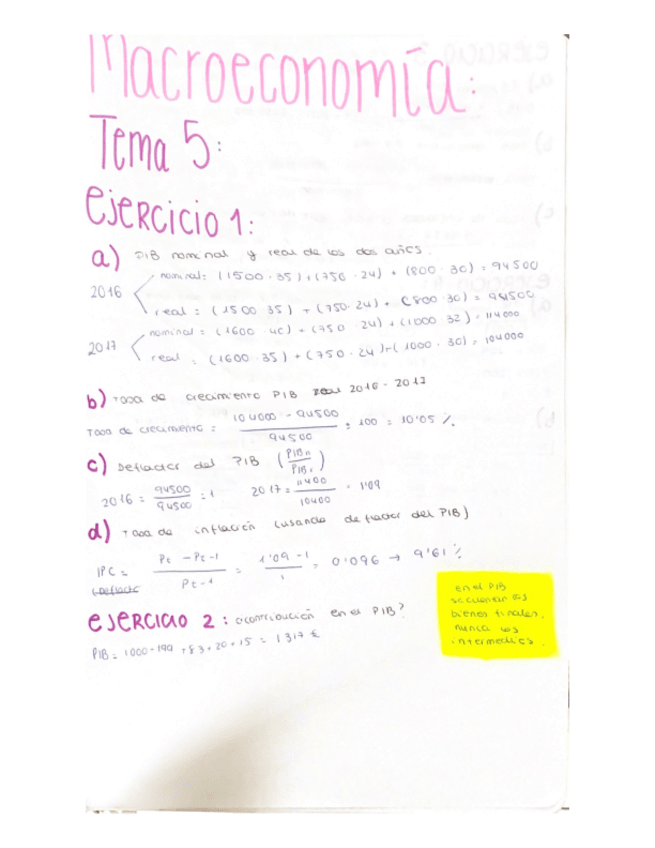 Macroeconomía:
Tema 5:
ejercicio 1:
a) PIB nominal y real de los dos años.
2016
nominal: (1500 · 35) + (750 · 24) + (800 · 30) = 94500
real: (1500 35) + (750 · 24) + (800 · 30) = 94500
2017
nominal = (1600 · 40) + (750 · 24) + (1000 · 32) = 114000
real = (1600 · 35) + (750 · 24) + (1000 · 30) = 104000
b) Tasa de crecimiento PIB real 2016 - 2017
Tasa de crecimiento = (104000 - 94500) / 94500 = 100 = 10'05 %
c) Deflactor del PIB (PIBn / PIBr)
2016 = 94500 / 94500 = 1 2017 = 11400 / 10400 = 1'09
d) Tasa de inflación (usando deflactor del PIB)
IPC = Pt - Pt-1 / Pt-1 = 1'09 - 1 / 1 = 0'096 → 9'61 %
ejercicio 2: contribución en el PIB?
PIB = 1000 + 20 + 15 = 1317 €
en el PIB
se cuentan los
bienes finales,
nunca los
intermedios.